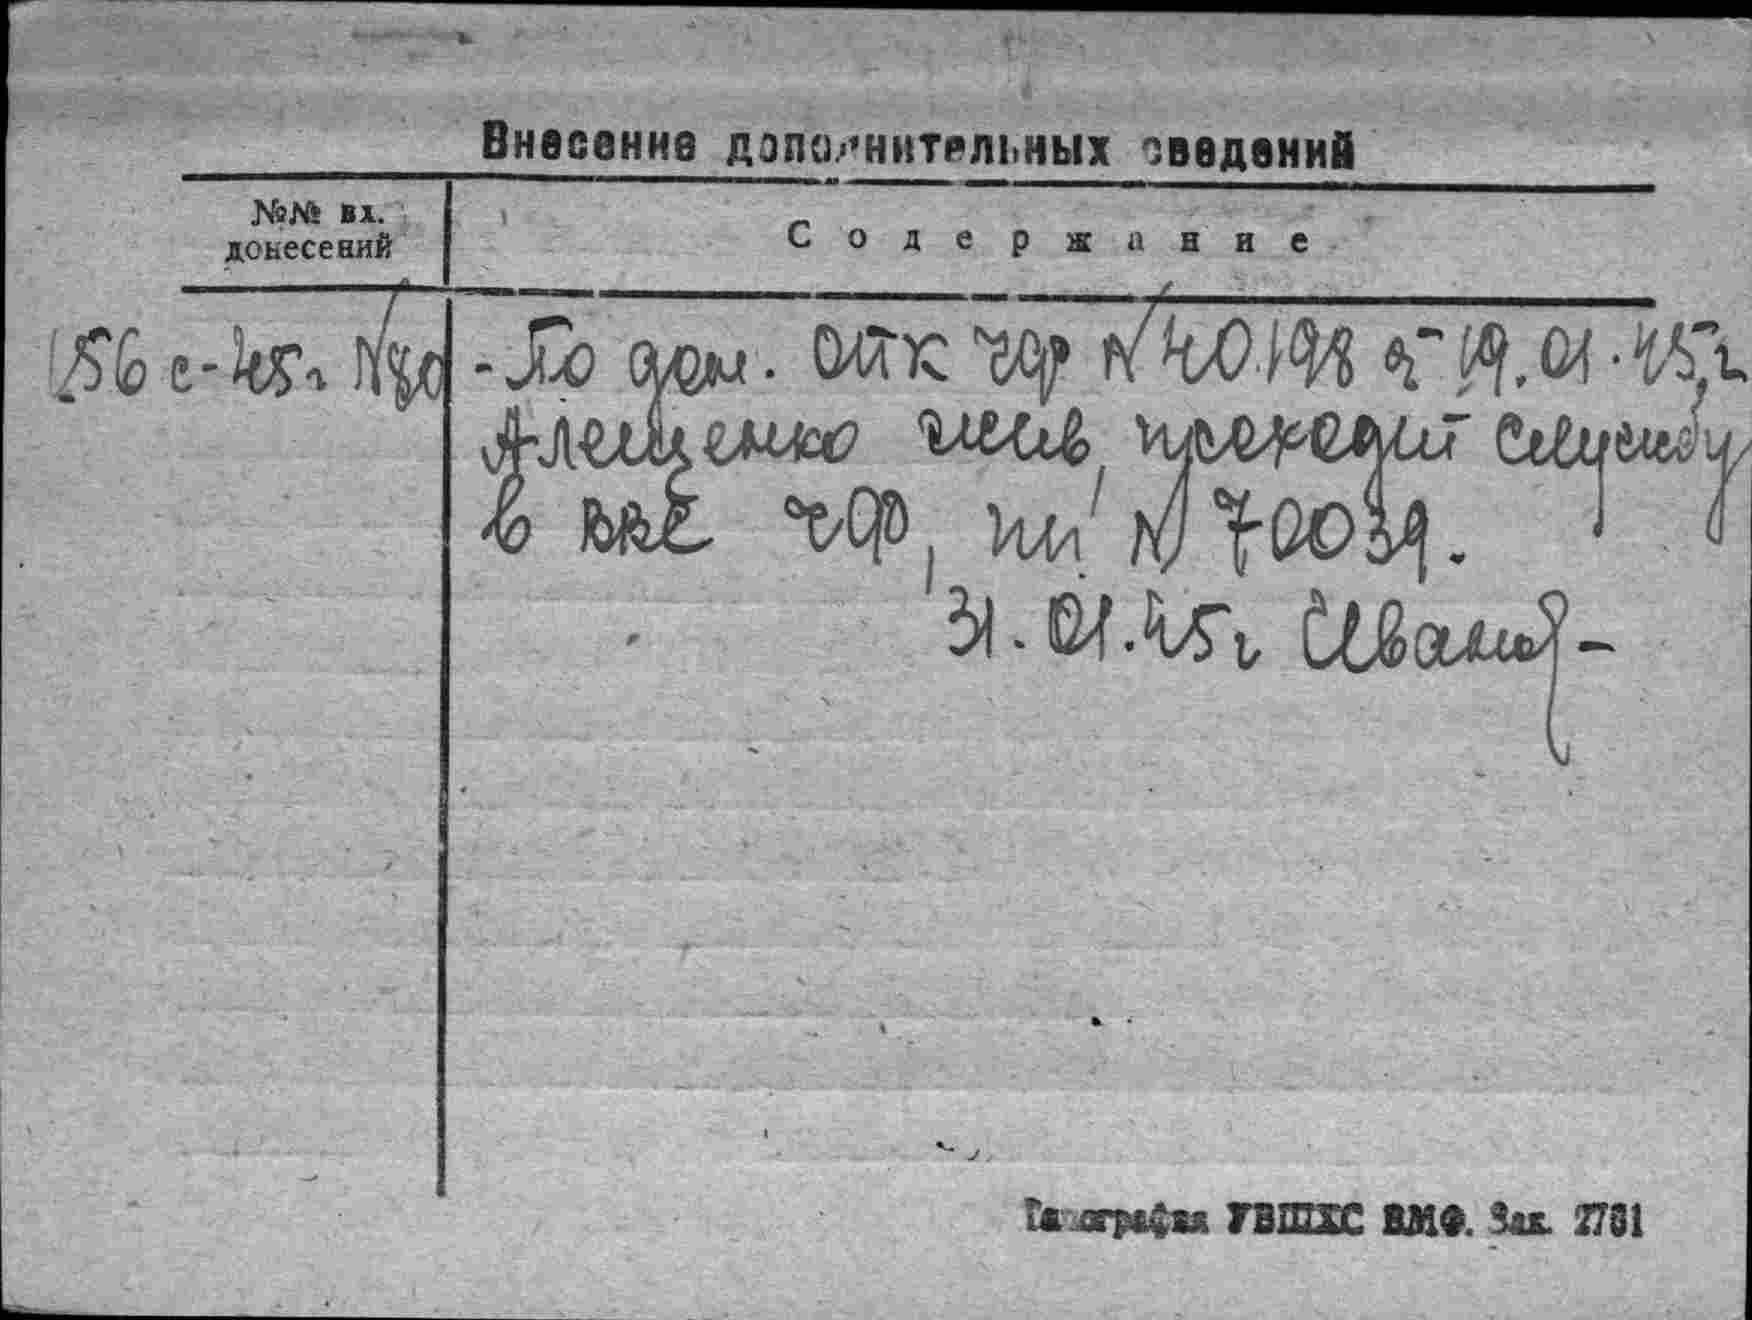 Внесение дополнительных сведений
№№ вх.
донесений
Содержание
156 с-45г. №80
- По дон. ОПК ЧФ № 40.198 от 19.01.45г.
Алещенко жив, проходит службу
в ВВС ЧФ, пп № 70039.
31.01.45г Иванов -
Типография УВШХС ВМФ. Зак. 2731